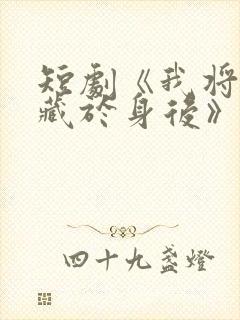 短劇《我將
藏於身後》
四十九盞燈